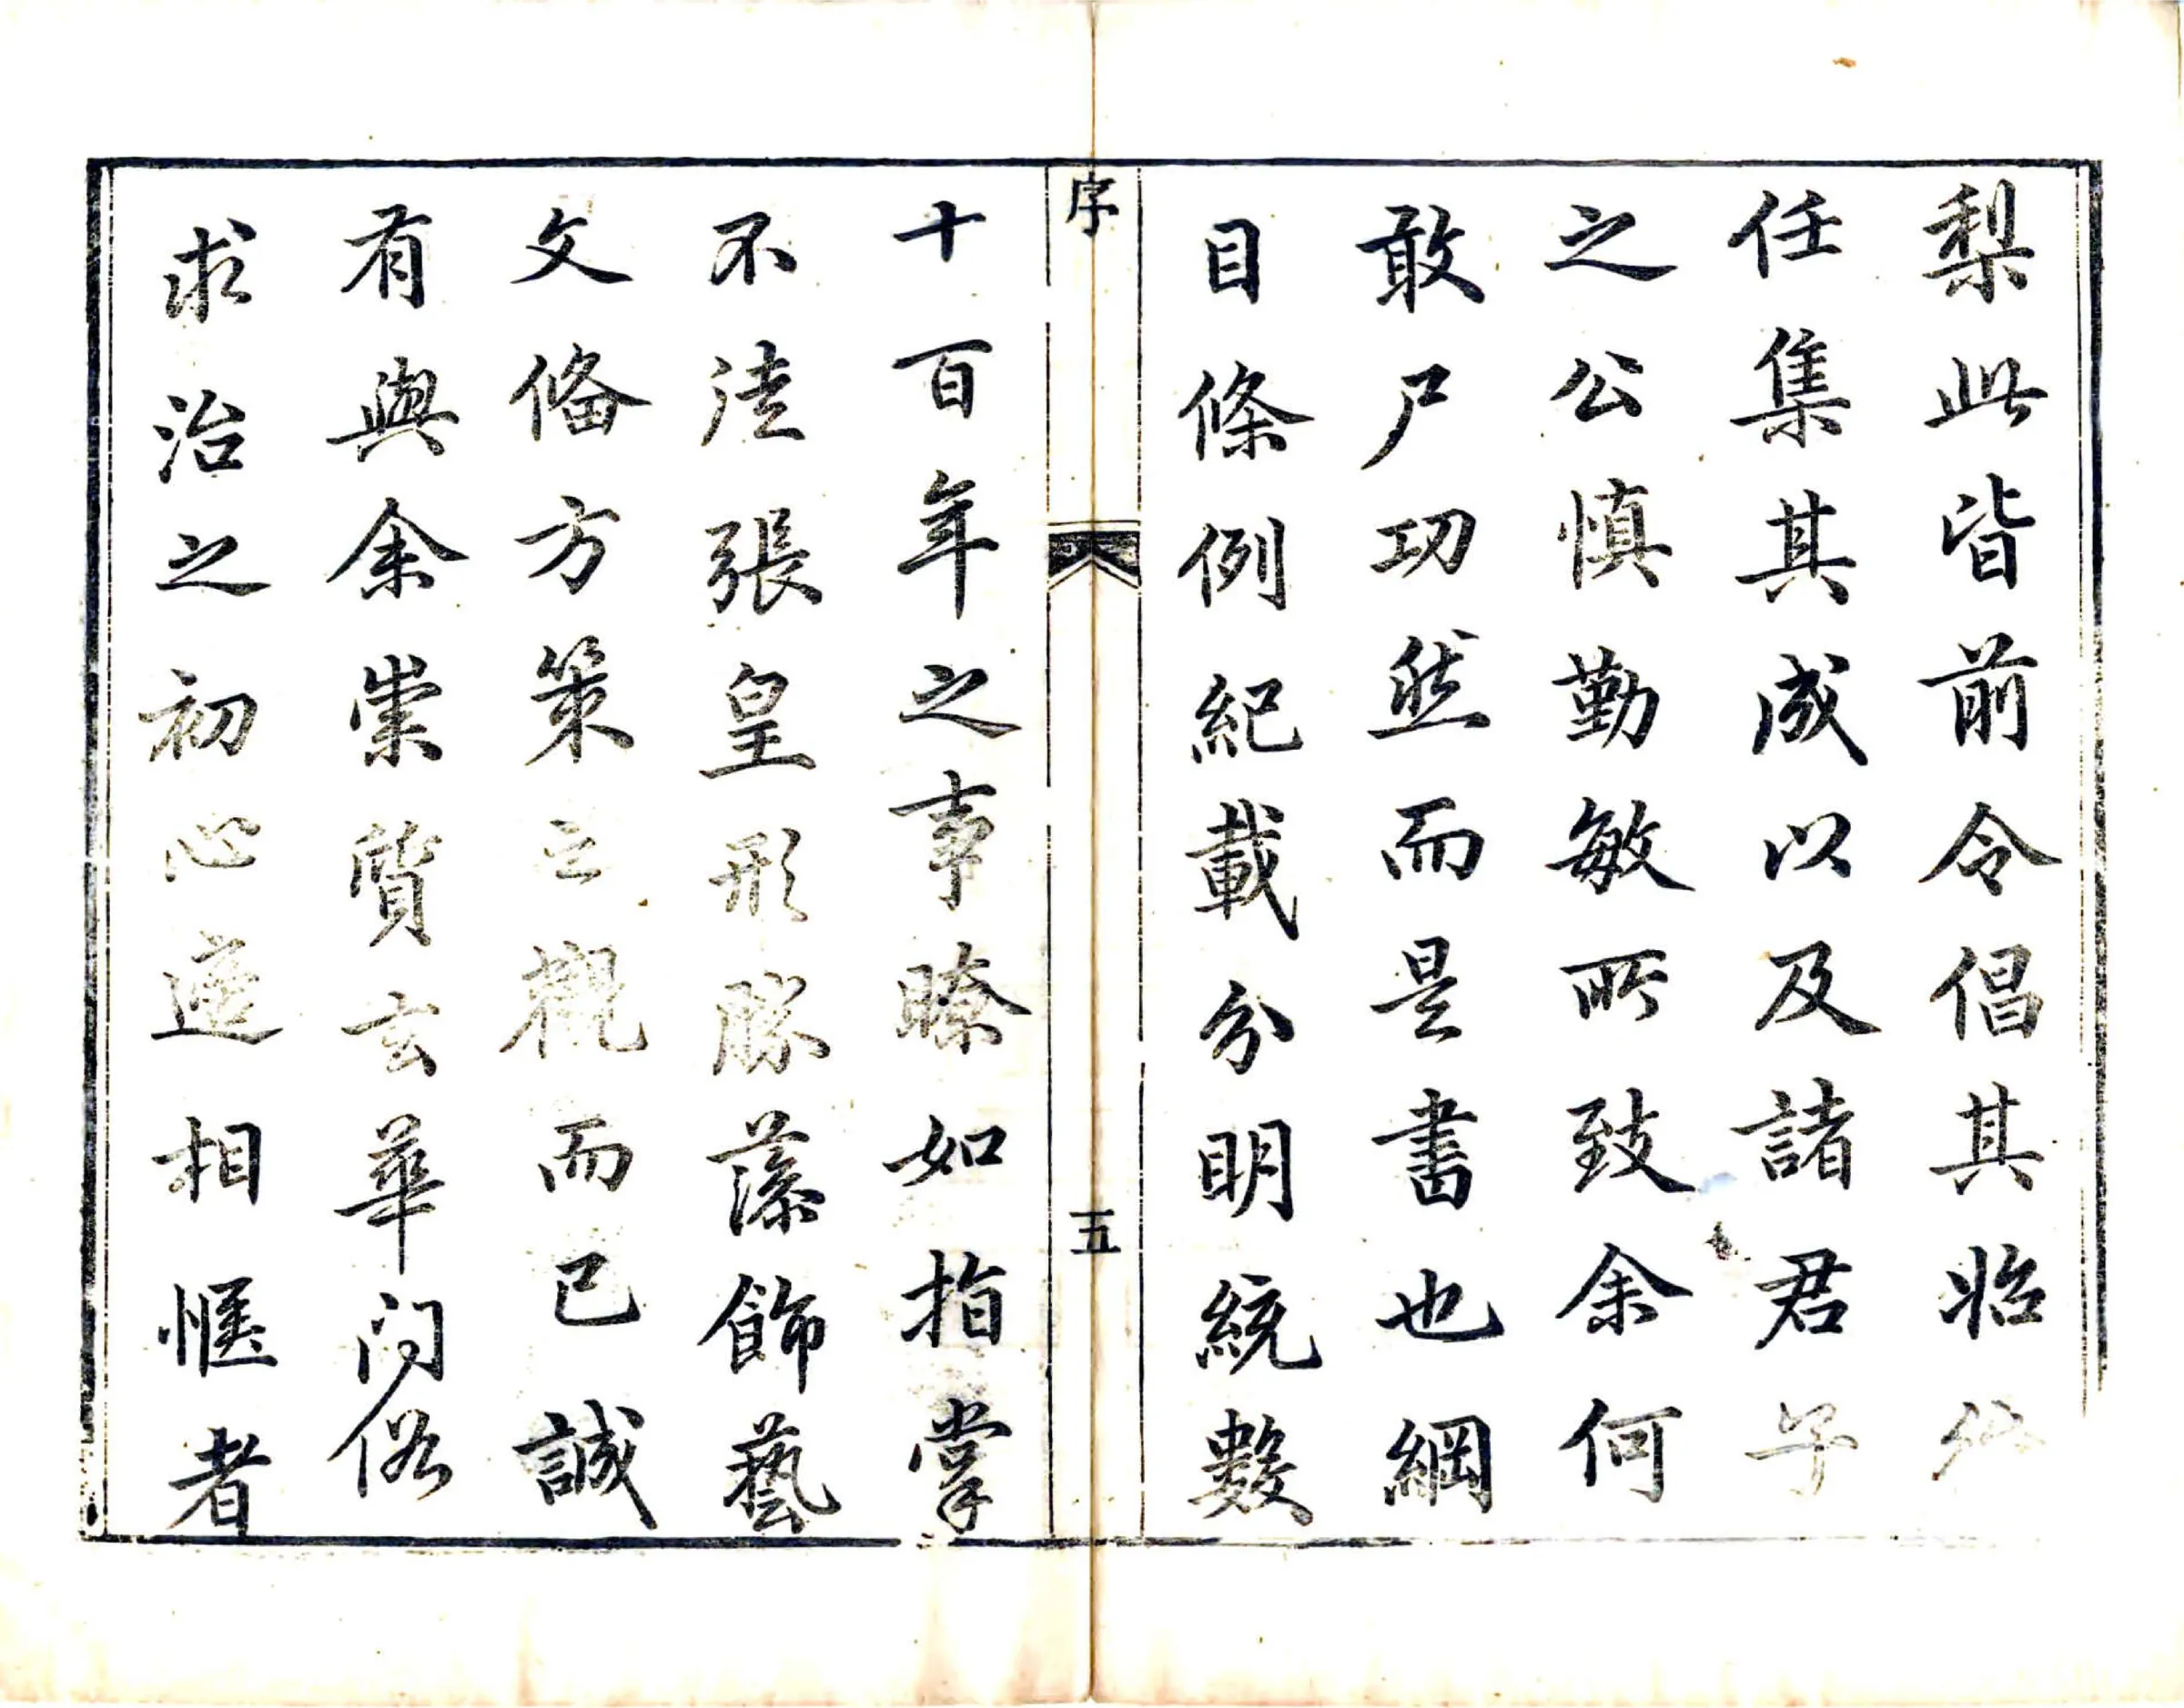 梨此皆前令倡其始後
任集其成以及諸君子
之公慎勤敏所致余何
敢尸功然而是書也綱
目條例紀載分明統數
序
五
十百年之事瞭如指掌
不徒張皇形勝藻飾藝
文俻方策之觀而已誠
有與余崇質玄華问俗
求治之初心適相愜者